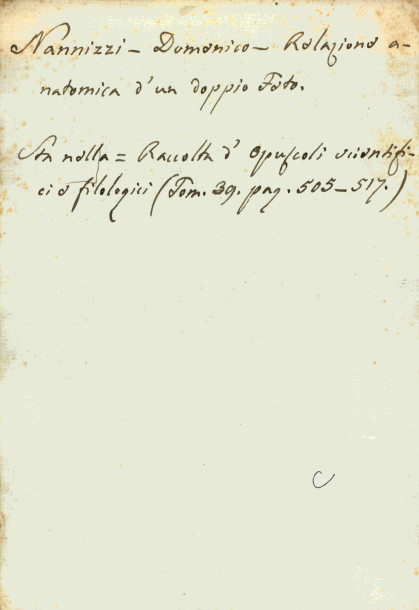 Nannizzi - Domenico - Relazione a-
natomica d'un doppio Feto.
Sta nella = Raccolta d' Opuscoli scientifi-
ci e filologici (Tom. 39. pag. 505-517.)
C